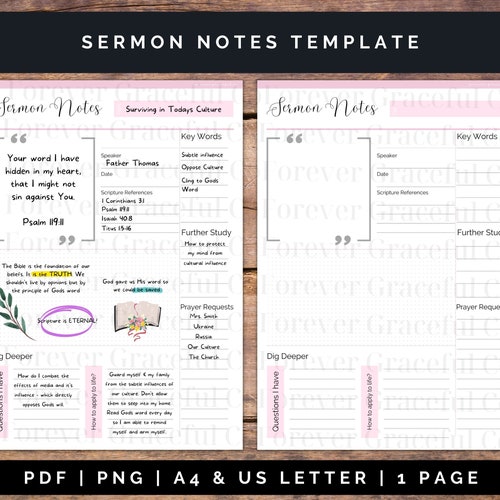 SERMON NOTES TEMPLATE
Sermon Notes
Surviving in Todays Culture
“
Your word I have
hidden in my heart,
that I might not
sin against You.
Psalm 119:11
”
Speaker
Father Thomas
Date
Scripture References
1 Corinthians 3:1
Psalm 119:11
Isaiah 40:8
Titus 1:15-16
Key Words
Subtle influence
Oppose Culture
Cling to Gods
Word
Further Study
How to protect
my mind from
cultural influence
The Bible is the foundation of our
beliefs. It is the TRUTH. We
shouldn't live by opinions but by
the principle of Gods word
Scripture is ETERNAL!
God gave us His word so
we could be saved.
Prayer Requests
Mrs. Smith
Ukraine
Russia
Our Culture
The Church
Dig Deeper
Questions I have
How do I combat the
effects of media and it's
influence - which directly
opposes Gods will
How to apply to life?
Guard myself & my family
from the subtle influences of
our culture. Don't allow
them to seep into my home.
Read Gods word every day
so I am able to remind
myself and arm myself.
Sermon Notes
“
”
Speaker
Date
Scripture References
Key Words
Further Study
Prayer Requests
Dig Deeper
Questions I have
How to apply to life?
Forever Graceful
PDF | PNG | A4 & US LETTER | 1 PAGE